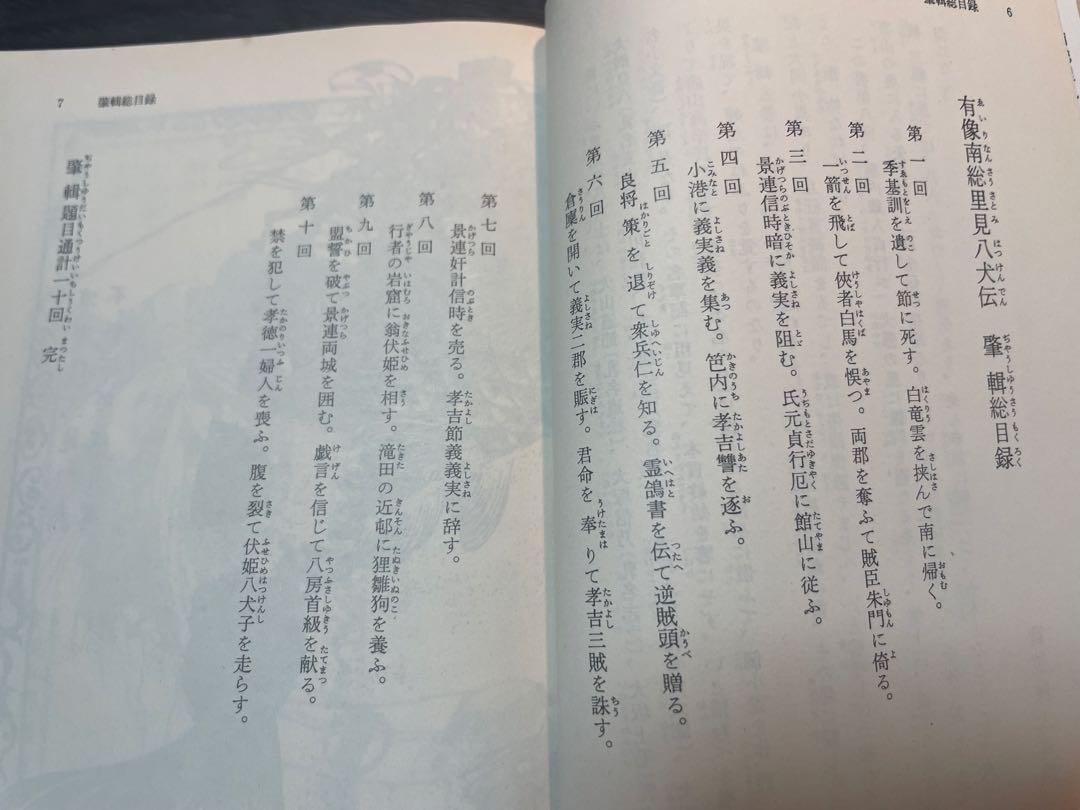 肇輯総目録 6
有像南総里見八犬伝 肇輯総目録
第一回
季基訓を遺して節に死す。白竜雲を挟んで南に帰く。
第二回
一箭を飛して俠者白馬を悞つ。両郡を奪ふて賊臣朱門に倚る。
第三回
景連信時暗に義実を阻む。氏元貞行厄に館山に従ふ。
第四回
小港に義実義を集む。笆内に孝吉讐を逐ふ。
第五回
良将策を退て衆兵仁を知る。霊鴿書を伝て逆賊頭を贈る。
第六回
倉廩を開いて義実二郡を賑す。君命を奉りて孝吉三賊を誅す。
7 肇輯総目録
第七回
景連奸計信時を売る。孝吉節義義実に辞す。
第八回
行者の岩窟に翁伏姫を相す。滝田の近邨に狸雛狗を養ふ。
第九回
盟誓を破て景連両城を囲む。戯言を信じて八房首級を献る。
第十回
禁を犯して孝徳一婦人を喪ふ。腹を裂て伏姫八犬子を走らす。
肇輯題目通計一十回 完